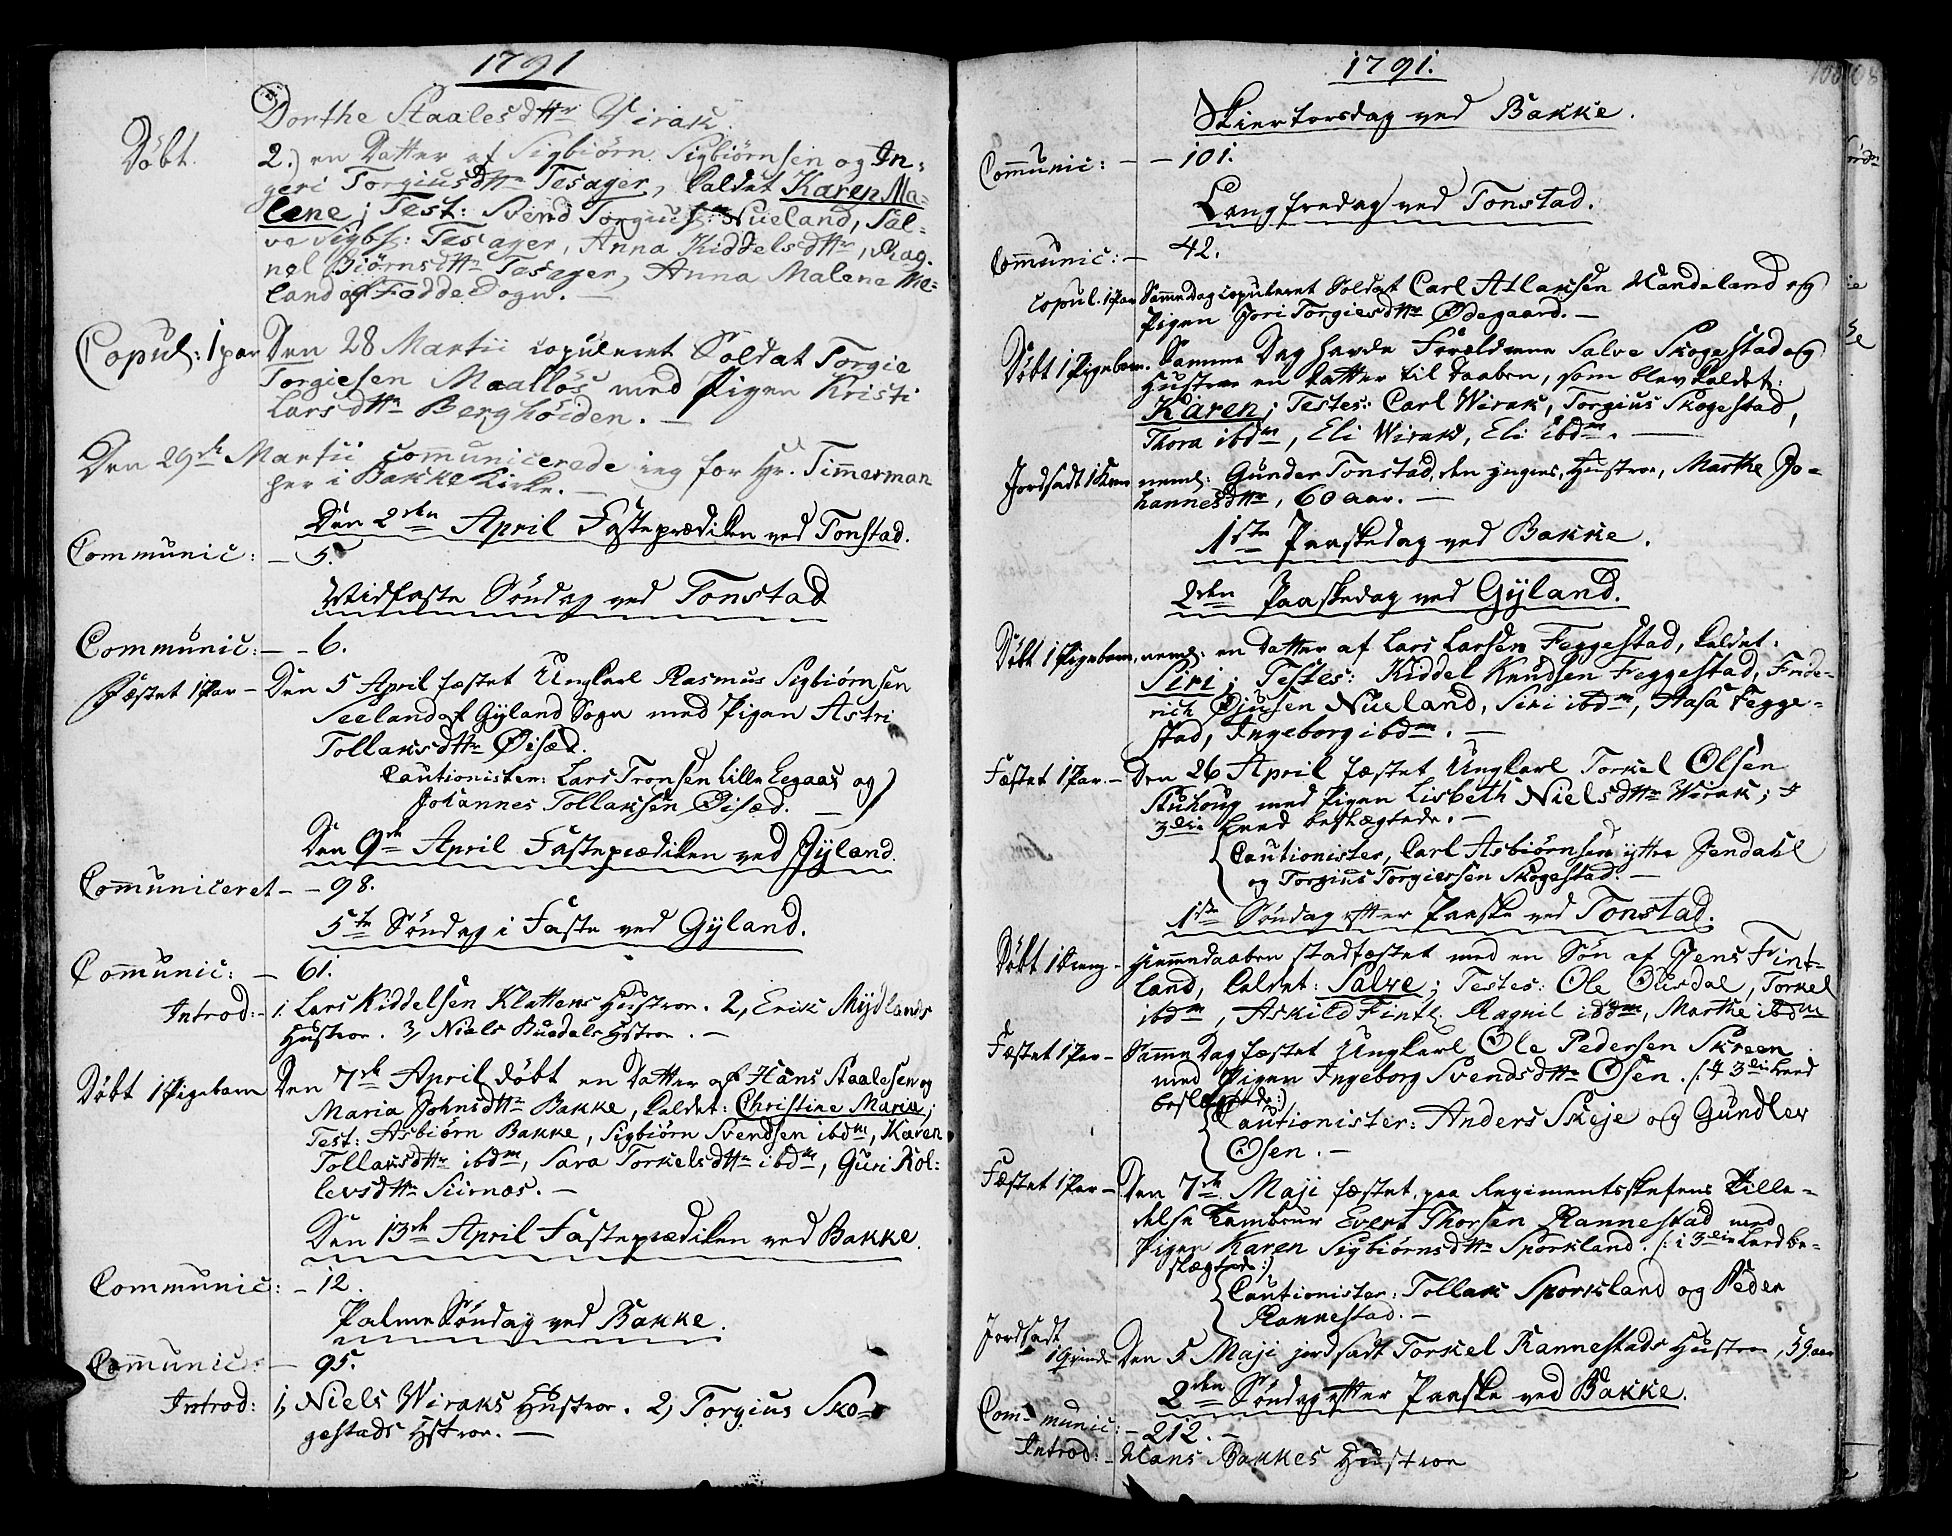 1791
Dorthe Staalesdttr Virak.
Døbt. 2.) en Datter af Sigbiørn Sigbiørnsen og In-
geri Torgiusdttr Tesager, kaldet Karen Ma-
lene; Test: Svend Torgiuss: Nüeland, Sal-
ve Sigbs: Tesager, Anna Kiddelsdttr, Rag-
nel Biørnsdttr Tesager, Anna Malene
land af Fedde Sogn. —
Copul: 1 par Den 28 Martii copuleret Soldat Torgie
Torgiesen Maallos med Pigen Kristi
Larsdttr Berghøiden. —
Den 29de Martii communicerede ieg for Hr. Timmerman
her i Bakke Kirke. —
Den 2den April Fasteprædiken ved Tonstad.
Communic: — 5.
Midfaste Søndag ved Tonstad
Communic: — - 6.
Fæstet 1 Par — Den 5 April fæstet Ungkarl Rasmus Sigbiørnsen
Seeland af Gyland Sogn med Pigen Astri
Tollaksdttr Øisæd.
Cautionister: Lars Tronsen lille Eegaas og
Johannes Tollaksen Øisæd. —
Den 9de April Fasteprædiken ved Gyland.
Communiceret — - 98.
5te Søndag i Faste ved Gyland.
Communic: — 61.
Introd: - 1. Lars Kiddelsen Klattens Hustroe. 2, Erik Mydlands
Hustroe. 3, Niels Buedals Hstroe. —
Døbt 1 Pigebarn Den 7de April døbt en Datter af Hans Staalesen og
Maria Johnsdttr Bakke, kaldet: Christine Marie;
Test: Asbiørn Bakke, Sigbiørn Svendsen ibdm, Karen
Tollaksdttr ibdm, Sara Torkelsdttr ibdm, Guri Rol-
levsdttr Siirnæs. —
Den 13de April Fasteprædiken ved Bakke.
Communic: — 12.
Palme Søndag ved Bakke.
Communic: — 95.
Introd: 1, Niels Wiraks Hustroe. 2, Torgius Sko-
gestads Hstroe. —
1791.
Skiertorsdag ved Bakke.
Communic: - — 101.
Langfredag ved Tonstad.
Communic: — 42.
Copul. 1 Par Samme Dag copuleret Soldat Carl Atlaksen Mandeland og
Pigen Jori Torgiesdttr Ødegaard. —
Døbt 1 Pigebarn. Samme Dag havde Forældrene Salve Skogestad og
Hustroe en Datter til Daaben, som blev kaldet:
Karen; Testes: Carl Wirak, Torgius Skogestad,
Thora ibdm, Eli Wirak, Eli ibdm. —
Jordsadt 1 Kone neml: Gunder Tonstad, den yngres, Hustroe, Marthe Jo-
hannesdttr, 60 aar. —
1ste Paaskedag ved Bakke.
2den Paaskedag ved Gyland.
Døbt 1 Pigebarn, neml: en Datter af Lars Larsen Feggestad, kaldet:
Siri; Testes: Kiddel Knudsen Feggestad, Fride-
rich Nüeland, Siri ibdm, Aasa Fegge-
stad, Ingeborg ibdm. —
Fæstet 1 Par. — Den 26 April fæstet Ungkarl Torkel Olsen
Stuhoug med Pigen Lisbeth Nielsdttr Wirak; i
3die Leed beslægtede. —
Cautionister, Carl Asbiørnsen yttre Jendahl
og Torgius Torgiersen Skogestad. —
1ste Søndag efter Paaske ved Tonstad.
Døbt 1 Dreng - Hiemmedaaben stadfæstet med en Søn af Jens Fint-
land, kaldet: Salve; Testes: Ole Ousdal, Torkel
ibdm, Askild Fintl. Ragnil ibdm, Marthe ibdm
Fæstet 1 Par — Samme Dag fæstet Ungkarl Ole Pedersen Skreen
med Pigen Ingeborg Svendsdttr Osen. (: i 3die Leed
beslægtede:)
Cautionister: Anders Skeje og Gundlev
Osen. —
Fæstet 1 Par — Den 7de Maji fæstet, paa Regimentschefens Tilla-
delse Tambour Evert Thorsen Rannestad med
Pigen Karen Sigbiørnsdttr Sporkland. (: i 3die Leed be-
slægtede:)
Cautionister: Tollak Sporkland og Peder
Rannestad. —
Jordsadt
1 Qvinde Den 5 Maji jordsadt Torkel Rannestads Hustroe, 59 aar
2den Søndag efter Paaske ved Bakke.
Communic: — 212. —
Introd: - Hans Bakkes Hustroe